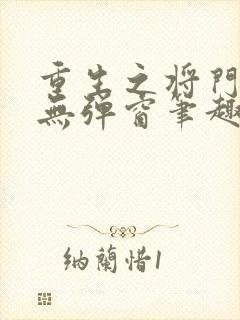 重生之将門
無弹窗筆趣
纳蘭惜1